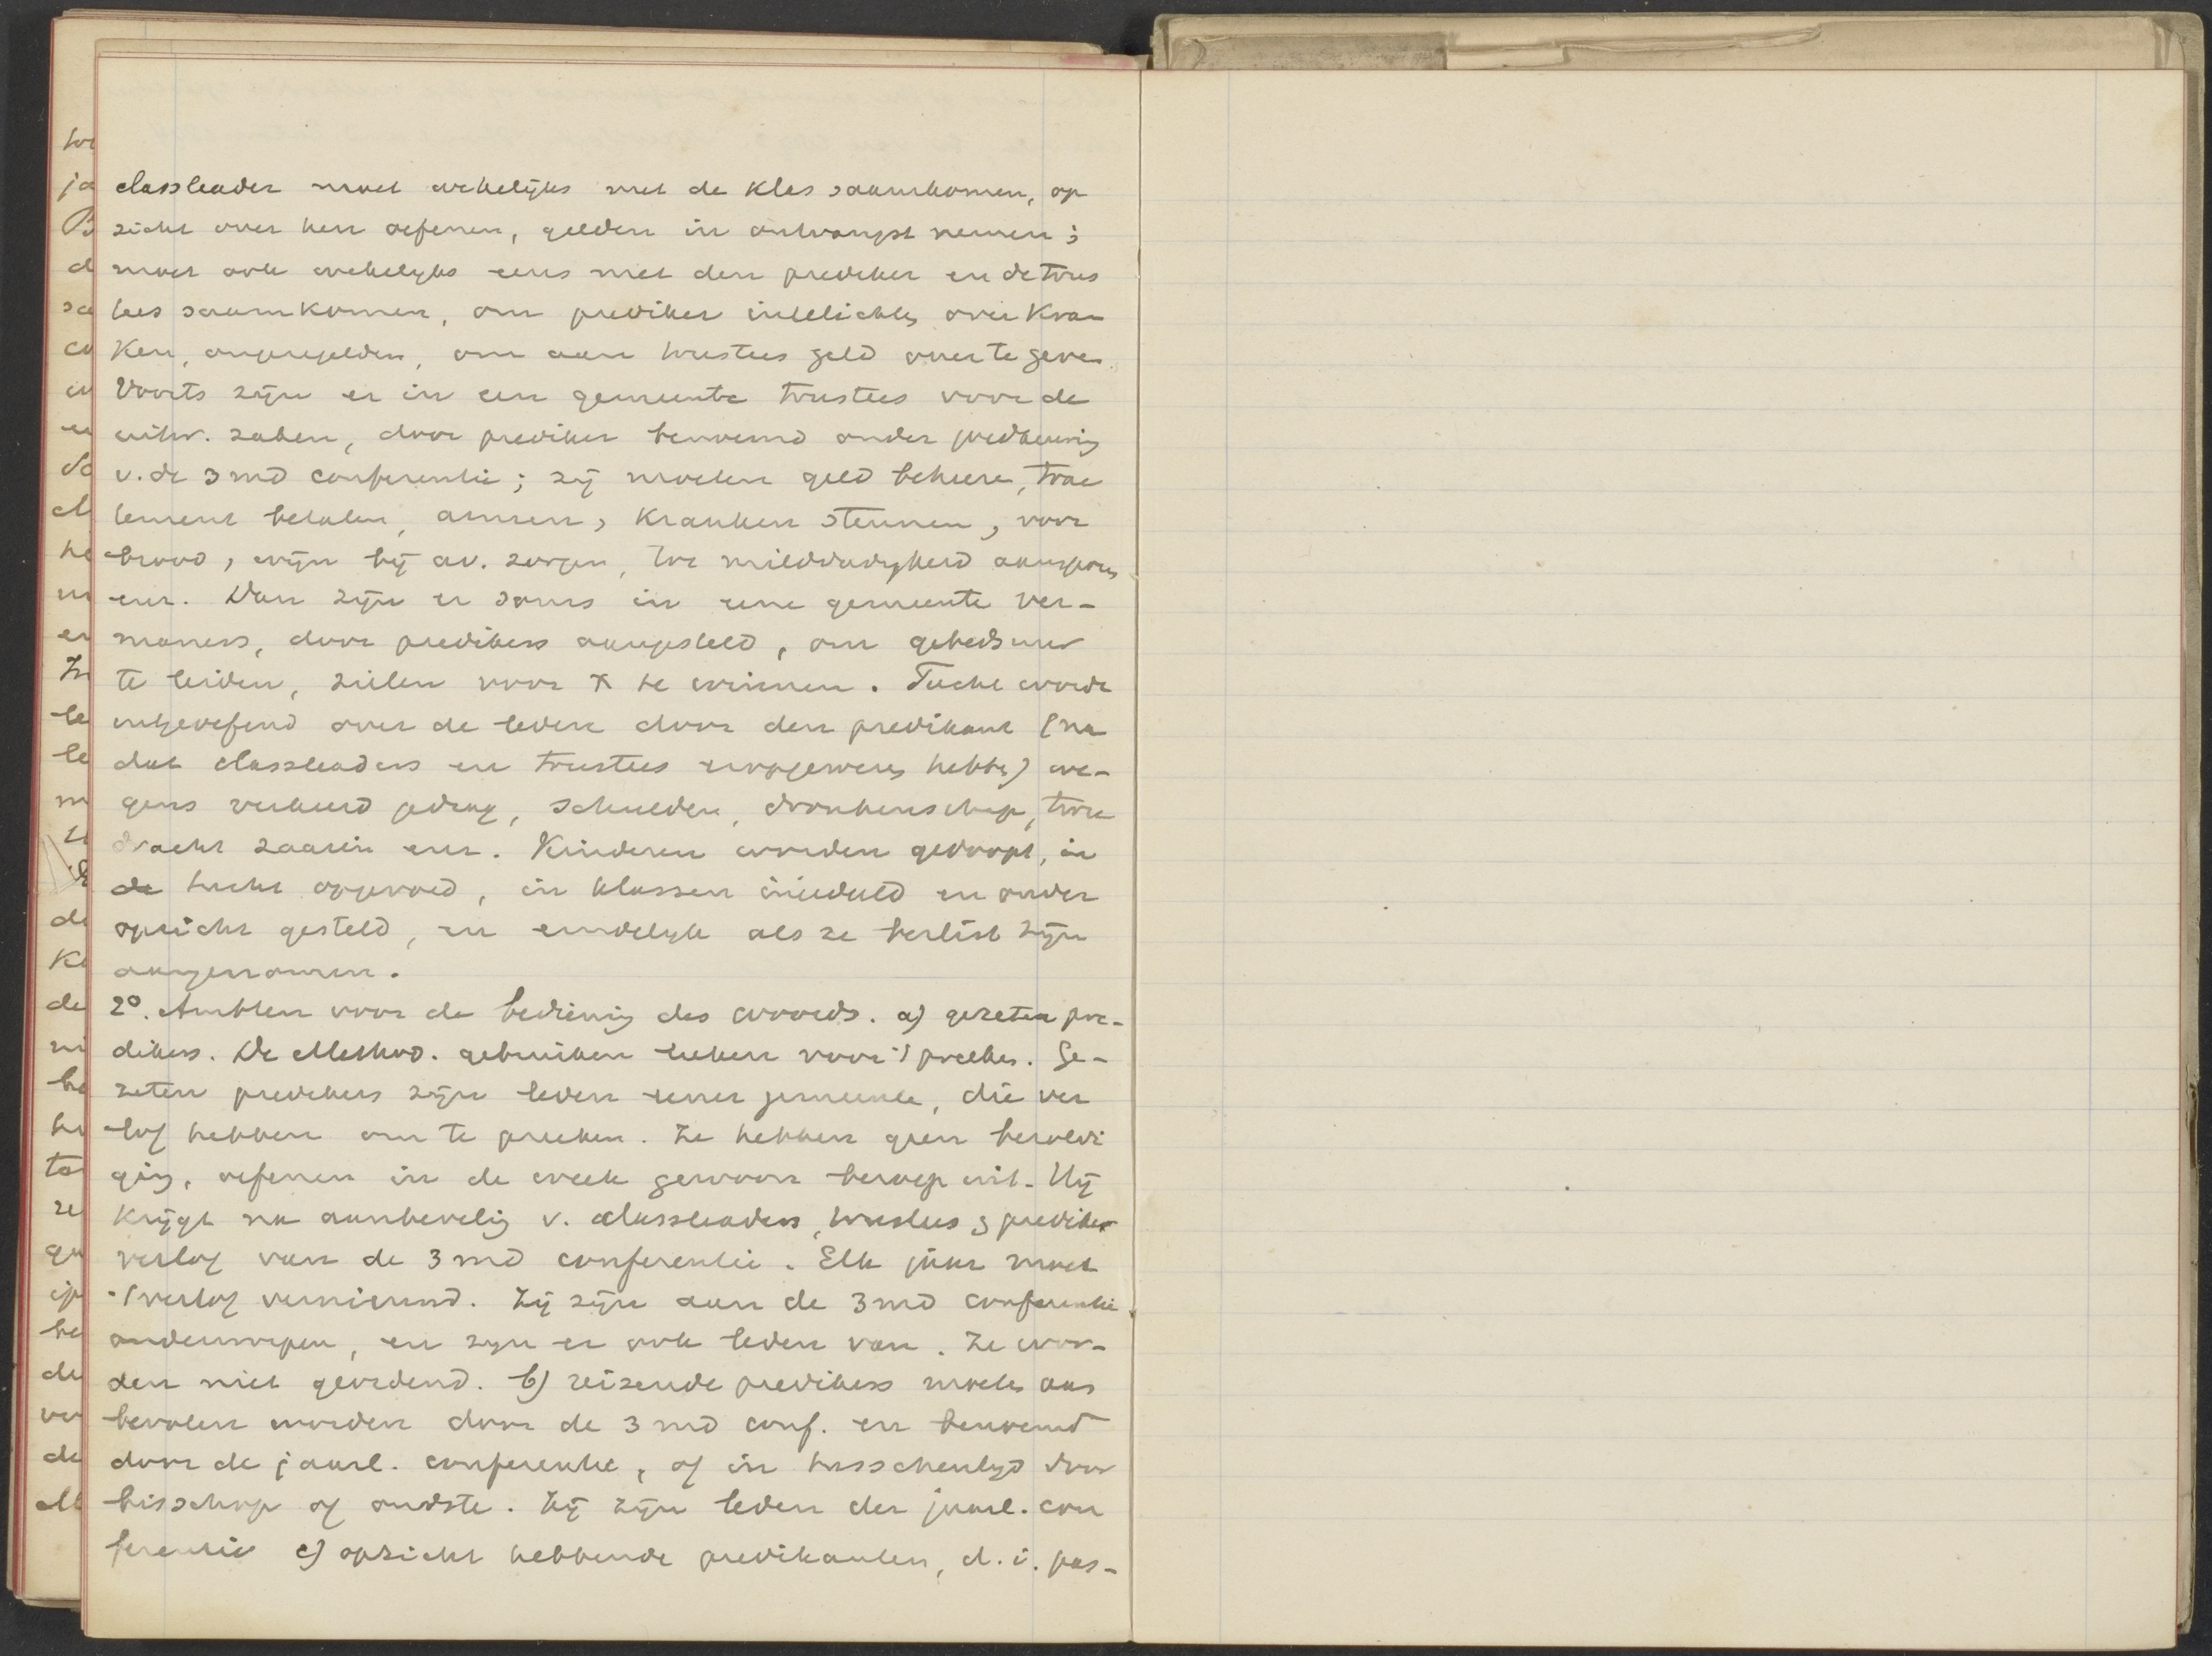 classleader moet wekelijks met de klas saamkomen, op
zicht over hen oefenen, gelden in ontvangst nemen;
moet ook wekelyks eens met den prediker en de trus
tees saamkomen, om prediker inlichten over Kran
ken, ongeregelden, om aan trustees geld over te geven.
Voorts zijn er in een gemeente trustees voor de
uitw. zaken, door prediker benoemd onder goedkeuring
v. de 3 md conferentie; zij moeten geld beheeren, trac
tement betalen, armen, Kranken steunen, voor
brood, wijn bij av. zorgen, tot milddadigheid aansporen
enz. Dan zijn er soms in eene gemeente Ver-
maners, door predikers aangesteld, om gebedsuur
te leiden, zielen voor X te winnen. Tucht wordt
uitgeoefend over de leden door den predikant (na
dat classleaders en trustees hebben) we-
gens verkeerd gedrag, schulden, dronkenschap, twee
dracht zaaien enz. Kinderen worden gedoopt, in
de tucht opgevoed, in klassen ingedeeld en onder
opzicht gesteld, en eindelyk als ze beslist zijn
aangenomen.
2°. Ambten voor de bediening des woords. a) gezeten pre-
dikers. De Method. gebruiken leken voor 't preeken. Ge-
zeten predikers zijn leden eener gemeente, die ver
lof hebben om te preeken. Ze hebben geen bezoldi
ging, oefenen in de week gewoon beroep uit. Hij
Krijgt na aanbeveling v. classleaders, trustees & prediker
verlof van de 3 md conferentie. Elk jaar moet
't verlof vernieuwd. Zij zijn aan de 3 md conferentie
onderworpen, en zyn er ook leden van. Ze wor-
den niet geordend. b) reizende predikers moeten aan
bevolen worden door de 3 md conf. en benoemd
door de jaarl. conferentie, of in tusschentyd door
bisschop of oudste. Zij zijn leden der jaarl. con
ferentie c) opzicht hebbende predikanten, d.i. pas-